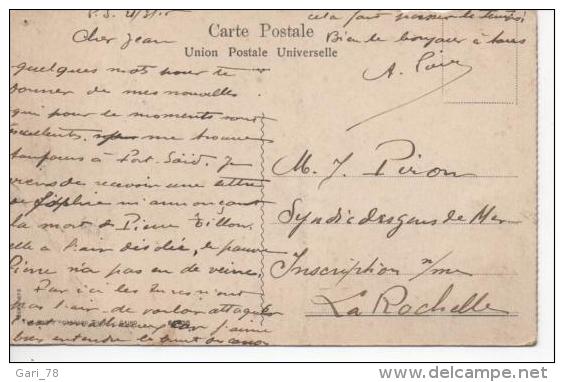 P.S. 4/3/15
Cher Jean
quelques mots pour te
donner de mes nouvelles
qui pour le moment sont
excellents. me trouve
toujours à Port-Saïd. Je
viens de recevoir une lettre
de Sophie m'annonçant
la mort de Pierre Tillon.
elle a l'air désolée, le pauvre
Pierre n'a pas eu de veine,
Par ici les turcs n'ont
pas l'air de vouloir attaquer
c'est malheureux car j'aime
bien entendre le bruit du canon
cela fait passer le temps
Bien le bonjour à tous
Carte Postale
Union Postale Universelle
M. J. Piron
Syndic des gens de Mer
Inscription m/me
La Rochelle
Gari_78
delcampe.net